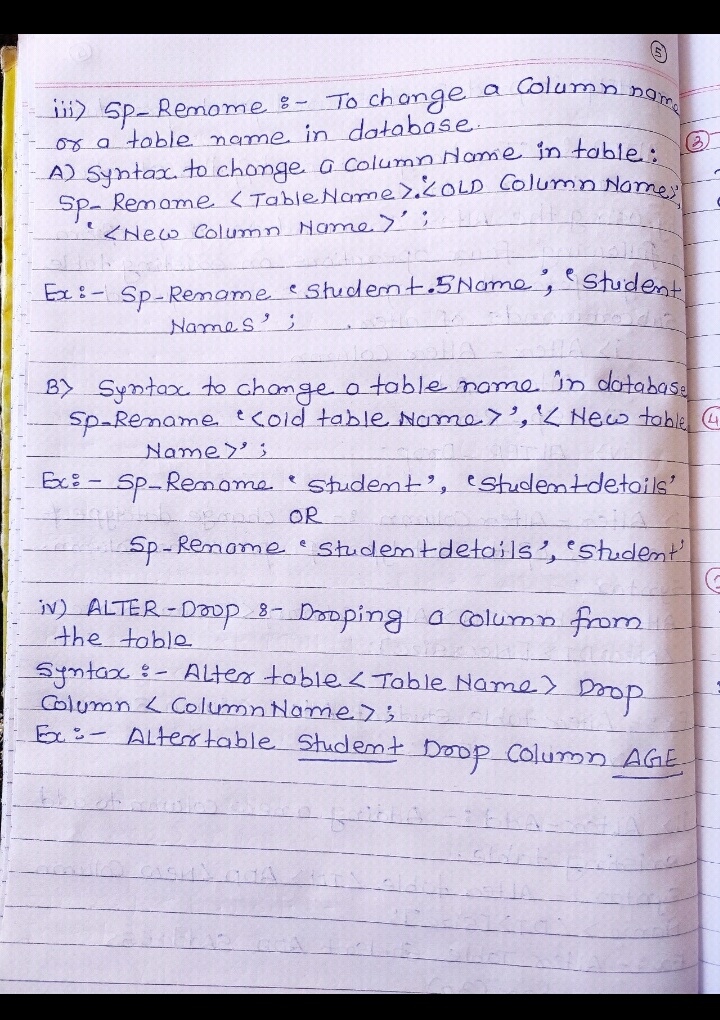 5
iii) Sp-Rename :- To change a Column name
or a table name in database.
A) Syntax to change a Column Name in table :
Sp- Rename <Table Name>.'<OLD Column Name>',
'<New Column Name>' ;
Ex :- Sp-Rename 'Student.SName', 'Student
Names' ;
B) Syntax to change a table name in database
Sp-Rename '<old table Name>', '< New table
Name>' ;
Ex :- Sp-Rename 'Student', 'Studentdetails'
OR
Sp-Rename 'Studentdetails', 'Student'
iv) ALTER-Drop :- Droping a column from
the table
Syntax :- Alter table < Table Name > Drop
Column < Column Name > ;
Ex :- Alter table Student Drop Column AGE
3
4